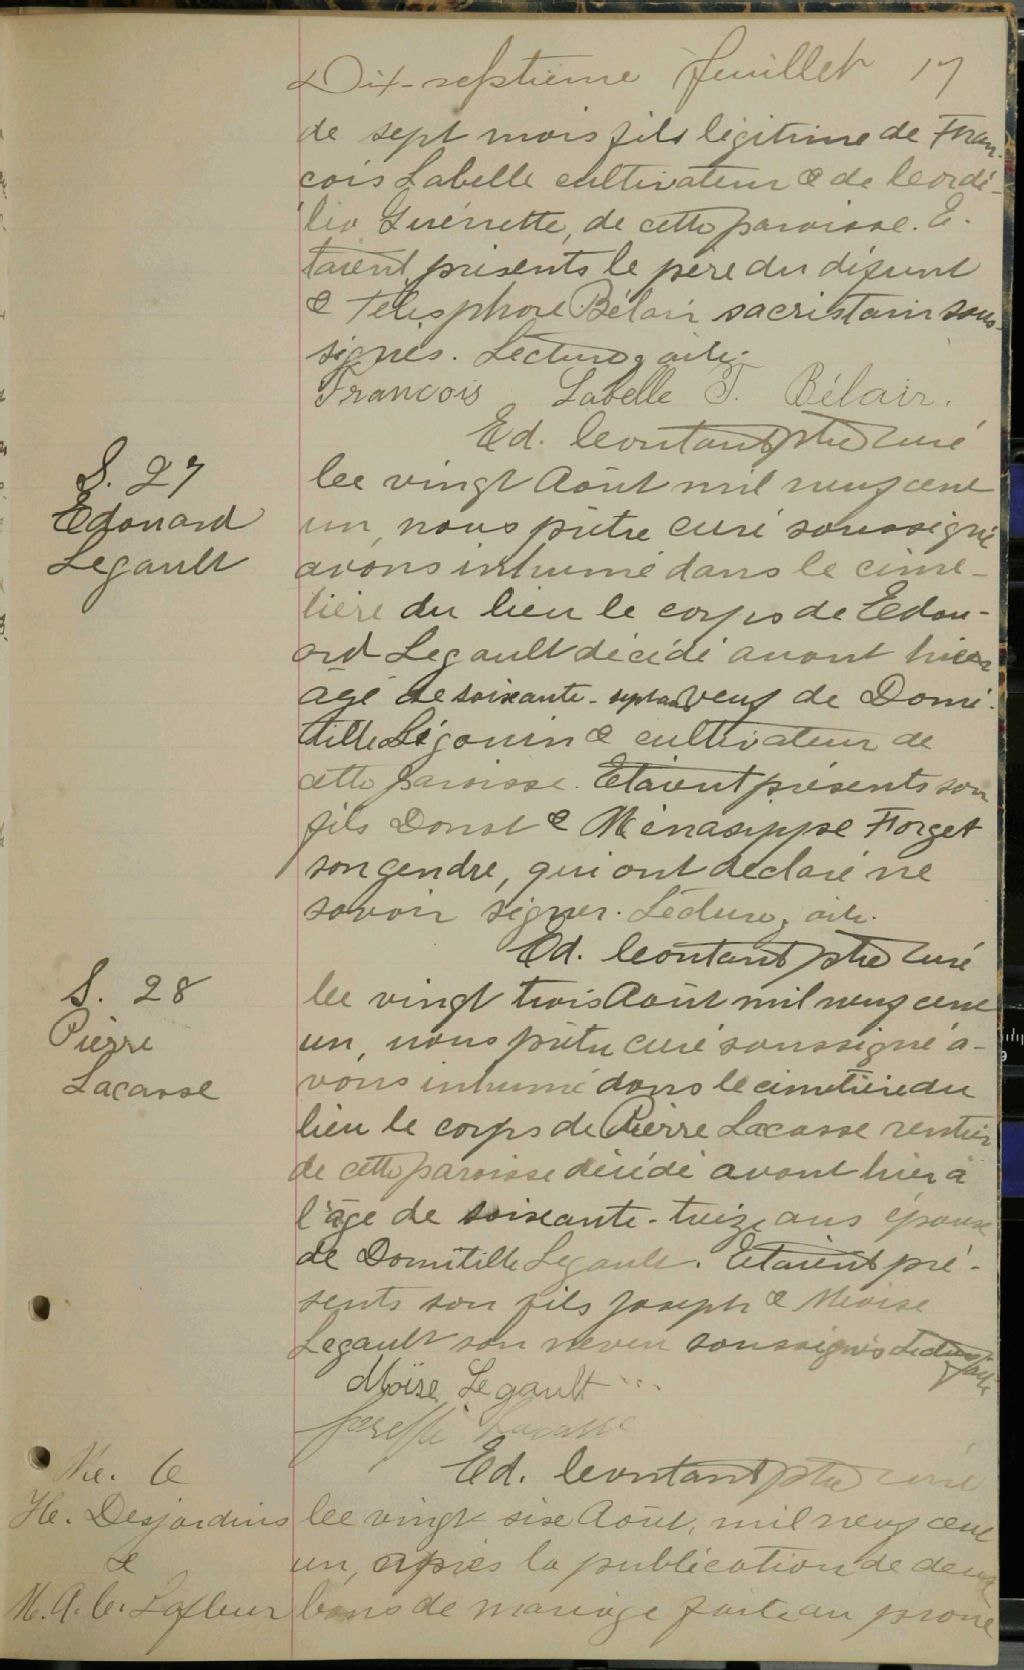 Dix-septième feuillet 17
de sept mois fils légitime de Fran-
çois Labelle cultivateur & de Cordé-
lia Guénette, de cette paroisse. E-
taient présents le père du défunt
& Télesphore Bélair sacristain sous-
signés. Lecture faite.
Francois Labelle T. Bélair.
Ed. Coutant ptre curé
S. 27
Edouard
Legault
Ce vingt Août mil neuf cent
un, nous prêtre curé soussigné
avons inhumé dans le cime-
tière du lieu le corps de Edou-
ard Legault décédé avant hier
âgé de soixante-sept ans veuf de Domi-
tille Légouin & cultivateur de
cette paroisse. Etaient présents son
fils Donat & Ménasippe Forget
son gendre, qui ont déclaré ne
savoir signer. Lecture faite.
Ed. Coutant ptre curé
S. 28
Pierre
Lacasse
Ce vingt trois Août mil neuf cent
un, nous prêtre curé soussigné a-
vons inhumé dans le cimetière du
lieu le corps de Pierre Lacasse rentier
de cette paroisse décédé avant hier à
l'âge de soixante-treize ans époux
de Domitille Legault. Etaient pré-
sents son fils Joseph & Moise
Legault son neveu soussignés Lecture faite
Moïse Legault
Joseph Lacasse
Ed. Coutant ptre curé
M. 6
H. Desjardins
&
M. A. C. Lafleur
Ce vingt six Août, mil neuf cent
un, après la publication de deux
bans de mariage faite au prone